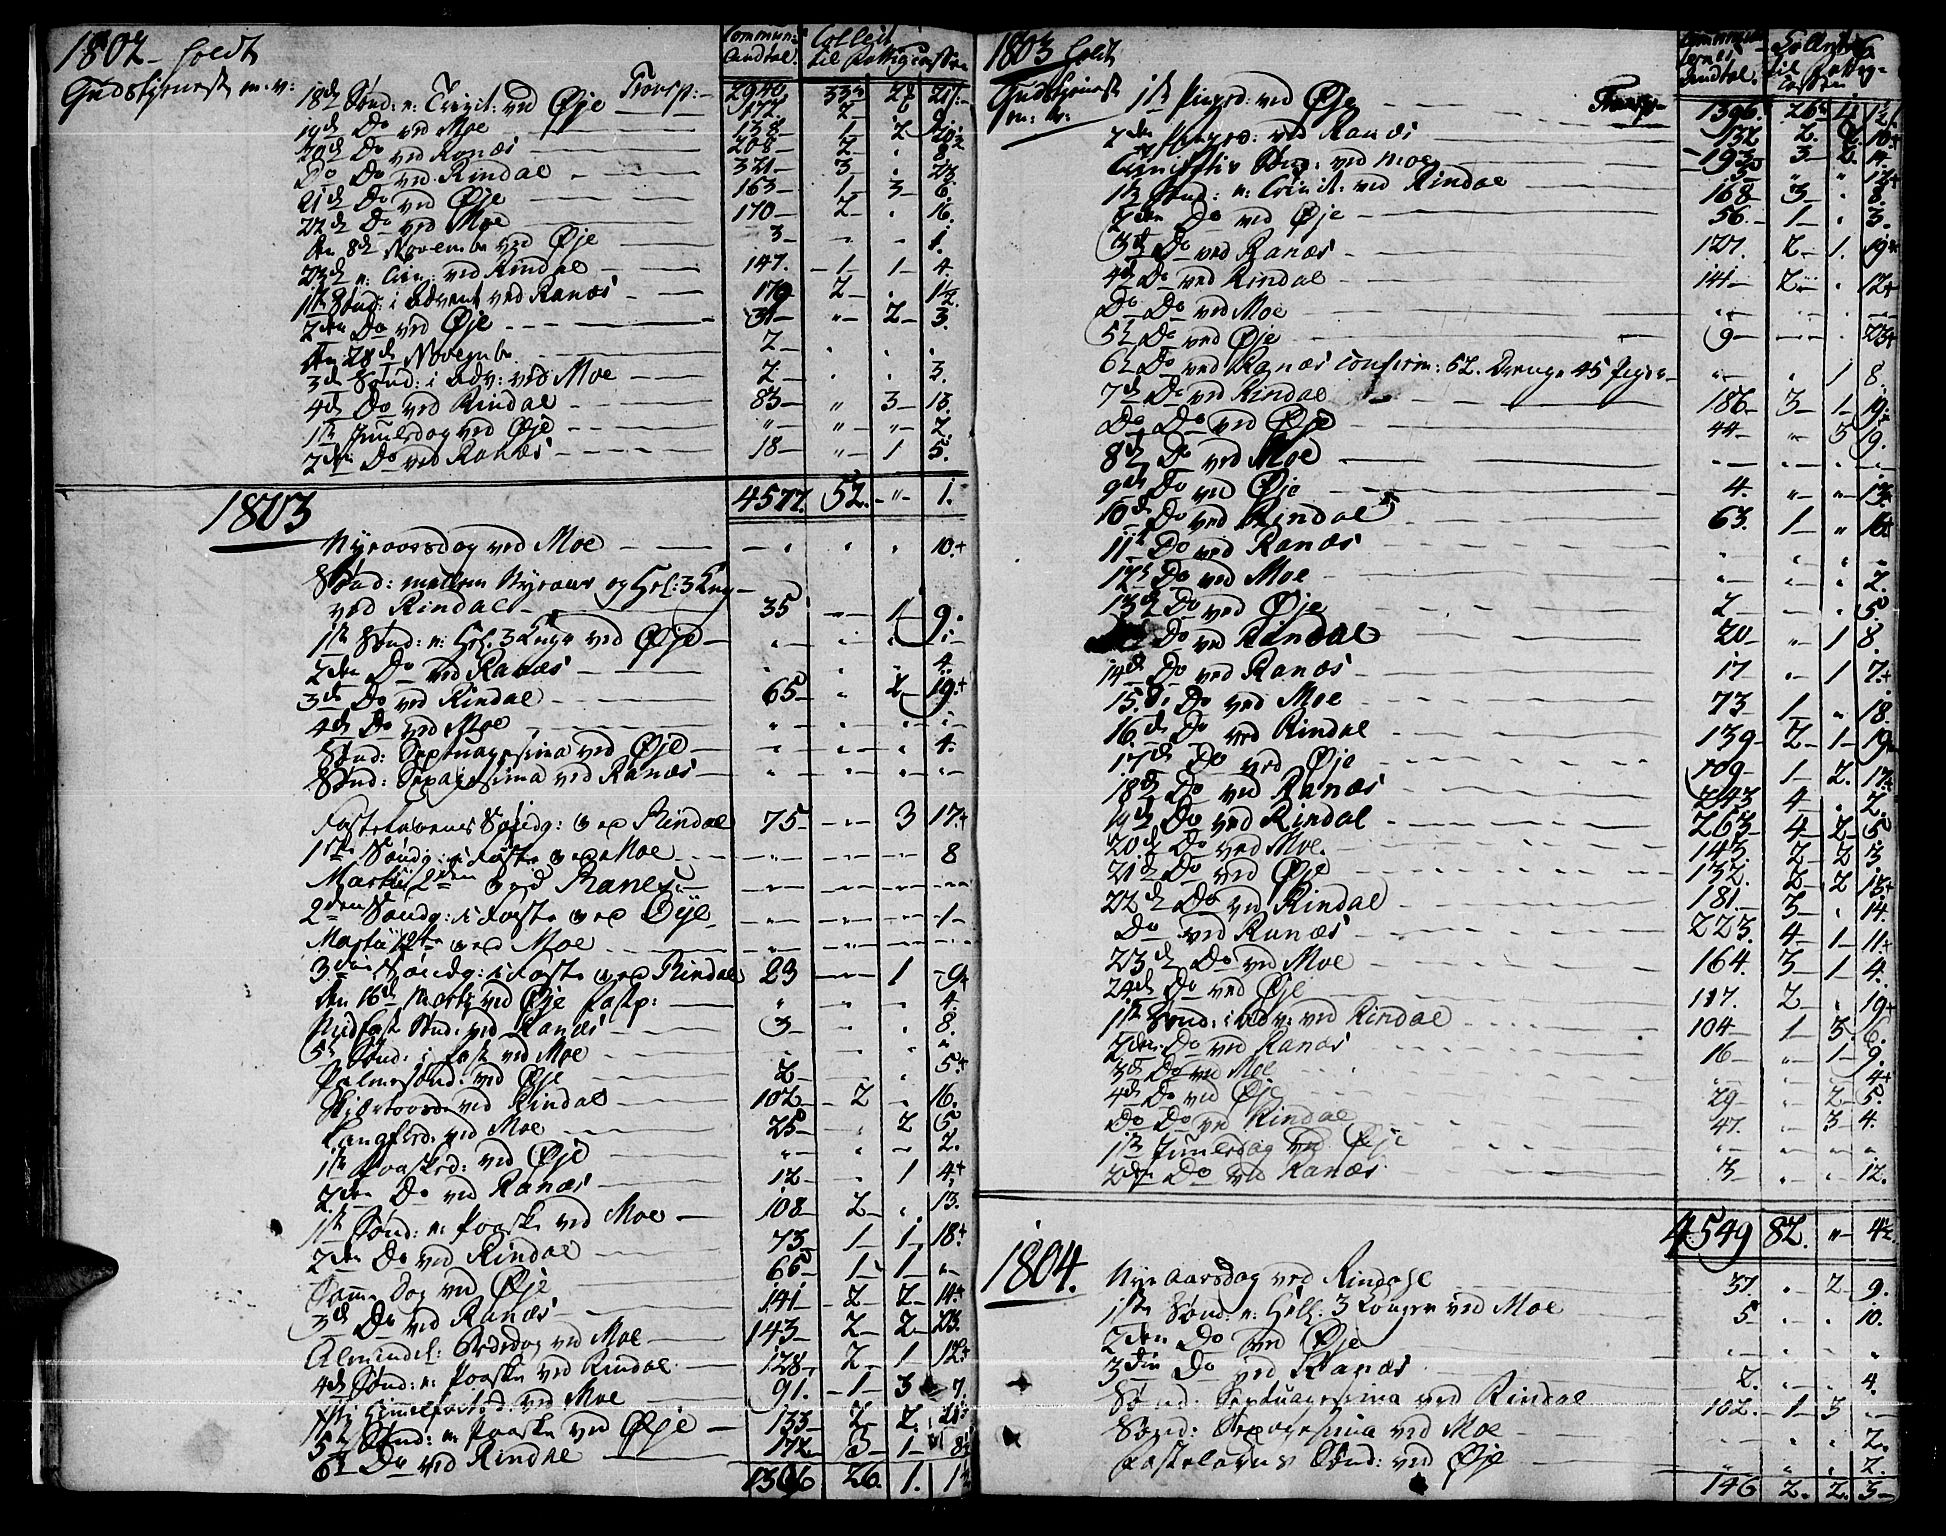 1802 holdt
Gudstjeneste m. v:
Commun: Andtal. Collect til Fattigcassen
18de Sønd: n: Trinit: ved Øje Transp: 2940 33 2
19de Do ved Moe 177 2
20de Do ved Ranæs 138 1 2
Do Do ved Rindal 208 2 8
21de Do ved Øje 321 3 23
22de Do ved Moe 163 1 3 6
170 2 16.
den 8de Novembr ved Øje 3 1.
23de n: Trin: ved Rindal 147. 1 1 4.
1ste Sønd: i Advent ved Ranæs 179 2 1½
2den Do ved Øje 31 " 2 3.
den 28de Novembr 2
3de Sønd: i Adv: ved Moe 2 3.
4de Do ved Rindal 83 " 3 13.
1ste Juuledag ved Øje " " " 2.
2den Do ved Ranæs 18 " 1 5.
4577. 52. " 1.
1803
Nyeaarsdag ved Moe 10.+
Sønd: mellem Nyeaar og Hel: 3 Kng
ved Rindal 35 1 9.
1ste Sønd: n: Hel. 3 Kngr ved Øje
2den Do ved Ranæs 4.
3de Do ved Rindal 65 2 19.+
4de Do ved Moe
Sønd: Septuagesima ved Øje 4.
Sønd: Sexagesima ved Ranæs
Fastelavens Søndg: ved Rindal 75 3 17.+
1ste Søndg: i Faste ved Moe 8
Martii 2den ved Ranes
2den Søndg: i Faste ved Øye 1
Martii 12te ved Moe
3die Søndg: i Faste ved Rindal 23 1 9
den 16de Martii ved Øje Fastp: 4.
Midfast Sønd: ved Ranæs 3 8.
5te Sønd: i Fast ved Moe
Palmesønd: ved Øje 2 5.+
Skjærtorsd: ved Rindal 102 2 16.
Langfred: ved Moe 25 2 5
1ste Paasked: ved Øje 2.
2den Do ved Ranæs 12 1 4+
1ste Sønd: n: Paaske ved Moe 108 2 13.
2den Do ved Rindal 73 1 1 18+
Samme Dag ved Øje 66 1 1
3de Do ved Ranæs 141 2 2 14+
Almindel: Bededag ved Moe 143 2 2 23.
4de Sønd: n: Paaske ved Rindal 128 2 1 12+
Xsti Himmelfartsd: ved Moe 91. 1 3 7.
5te Sønd: n: Paaske ved Øje 133 2 2
6te Do ved Rindal 172 3 1 8
1396 26. 1. 1½
1803 holdt
Gudstjeneste m. v:
Andtal. til Fattigcassen
1ste Pinsed: ved Øje Transp 1396 26
2den Pinsed: ved Ranæs 132 2
Trinitatis Sønd: ved Moe 193 3
1ste Sønd: n: Trinit: ved Rindal 168 3 8.
2den Do ved Øje 56. 1 3.
3de Do ved Ranæs 127. 2 1. 19+
4de Do ved Rindal 141 2 12+
Do Do ved Moe
5te Do ved Øje 9 23+
6te Do ved Ranæs Confirm: 52. Drenge 45 Piger 1 8.
7de Do ved Rindal 186 3 1
Do Do ved Øje 44 3 9.
8de Do ved Moe
9de Do ved Øje 4. " "
10de Do ved Rindal 63. 1 " 16+
11te Do ved Ranæs
12te Do ved Moe 2.
13de Do ved Øje 2 5
Do ved Rindal 20 " 1 8.
14de Do ved Ranæs 17 1 7.+
15de Do ved Moe 73 1 18.
16de Do ved Rindal 139 2 1
17de Do ved Øje 109 1 2.
18de Do ved Ranæs 243 4 2.
19de Do ved Rindal 263 4 2 5
20de Do ved Moe. 143 2 2 3
21de Do ved Øje 132. 2 2 15+
22de Do ved Rindal 181. 3 14.
Do ved Ranæs 223. 4 1 11+
23de Do ved Moe 164. 3 1 4.
24de Do ved Øje 117. 2 19+
1ste Sønd: i Adv: ved Rindal 104 1 3. 6.
2den Do ved Ranæs 16 1 9.
3de Do ved Moe 4+
4de Do ved Øje 29 2 5.
Do Do ved Rindal 47. 3 4.
1ste Juuledag ved Øje
2den Do ved Ranæs 3 12.
4549 82. " 4½
1804.
Nye Aarsdag ved Rindahl 37. 2 9.
1ste Sønd: n: Hell: 3 Konger ved Moe 5 10.
2den Do ved Øje
3die Do ved Ranæs 2. 4.
Sønd: Septuagesima ved Rindal 102. 1 3
Sønd: Sexagesima ved Moe 2.
Fastelavns Sønd: ved Øje 2.
146 2. 2. 3